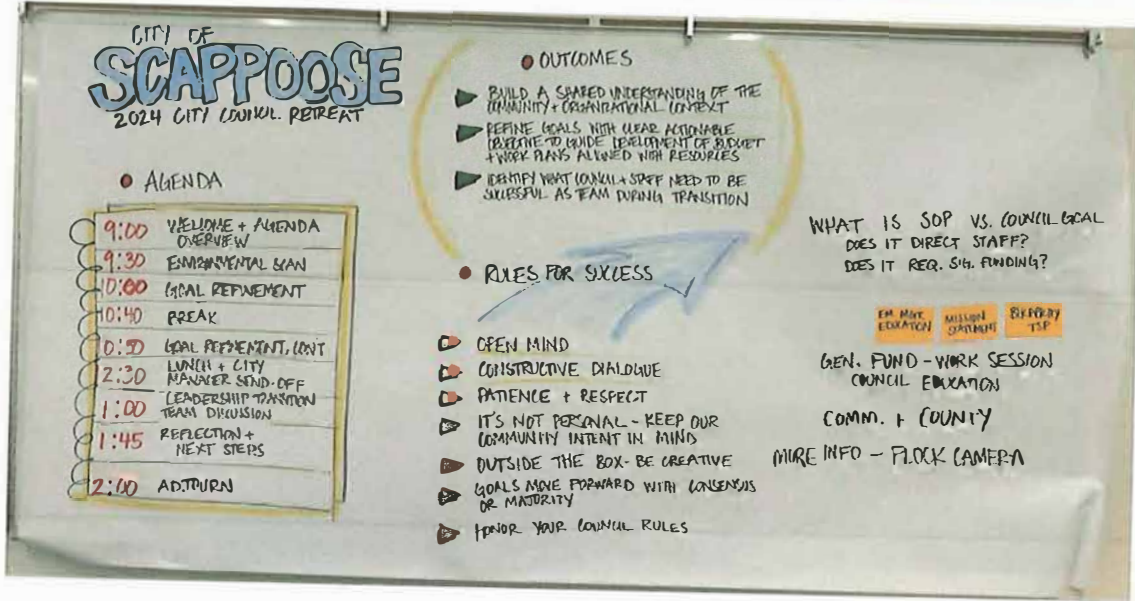 CITY OF
SCAPPOOSE
2024 CITY COUNCIL RETREAT
AGENDA
9:00 WELCOME + AGENDA
OVERVIEW
9:30 ENVIRONMENTAL SCAN
10:00 GOAL REFINEMENT
10:40 BREAK
10:50 GOAL REFINEMENT, CONT
12:30 LUNCH + CITY
MANAGER SEND-OFF
1:00 LEADERSHIP TRANSITION
TEAM DISCUSSION
1:45 REFLECTION +
NEXT STEPS
2:00 ADJOURN
OUTCOMES
BUILD A SHARED UNDERSTANDING OF THE
COMMUNITY + ORGANIZATIONAL CONTEXT
REFINE GOALS WITH CLEAR ACTIONABLE
OBJECTIVE TO GUIDE DEVELOPMENT OF BUDGET
+ WORK PLANS ALIGNED WITH RESOURCES
IDENTIFY WHAT COUNCIL + STAFF NEED TO BE
SUCCESSFUL AS TEAM DURING TRANSITION
RULES FOR SUCCESS
OPEN MIND
CONSTRUCTIVE DIALOGUE
PATIENCE + RESPECT
IT'S NOT PERSONAL - KEEP OUR
COMMUNITY INTENT IN MIND
OUTSIDE THE BOX - BE CREATIVE
GOALS MOVE FORWARD WITH CONSENSUS
OR MAJORITY
HONOR YOUR COUNCIL RULES
WHAT IS SOP VS. COUNCIL GOAL
DOES IT DIRECT STAFF?
DOES IT REQ. SIG. FUNDING?
EM. MGT
EDUCATION
MISSION
STATEMENT
TSP
GEN. FUND - WORK SESSION
COUNCIL EDUCATION
COMM. + COUNTY
MORE INFO - FLOCK CAMERA